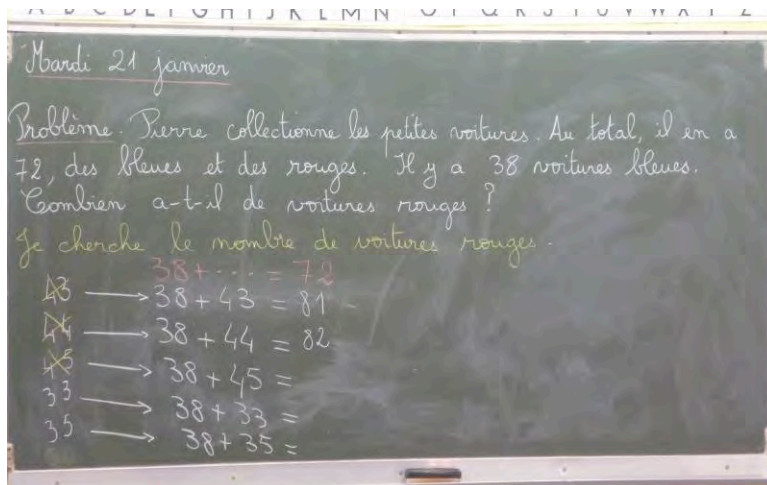 A B C D E F G H I J K L M N O P Q R S T U V W X Y Z
Mardi 21 janvier
Problème. Pierre collectionne les petites voitures. Au total, il en a
72, des bleues et des rouges. Il y a 38 voitures bleues.
Combien a-t-il de voitures rouges ?
Je cherche le nombre de voitures rouges.
38 + ..... = 72
43 → 38 + 43 = 81
44 → 38 + 44 = 82
45 → 38 + 45 =
33 → 38 + 33 =
35 → 38 + 35 =